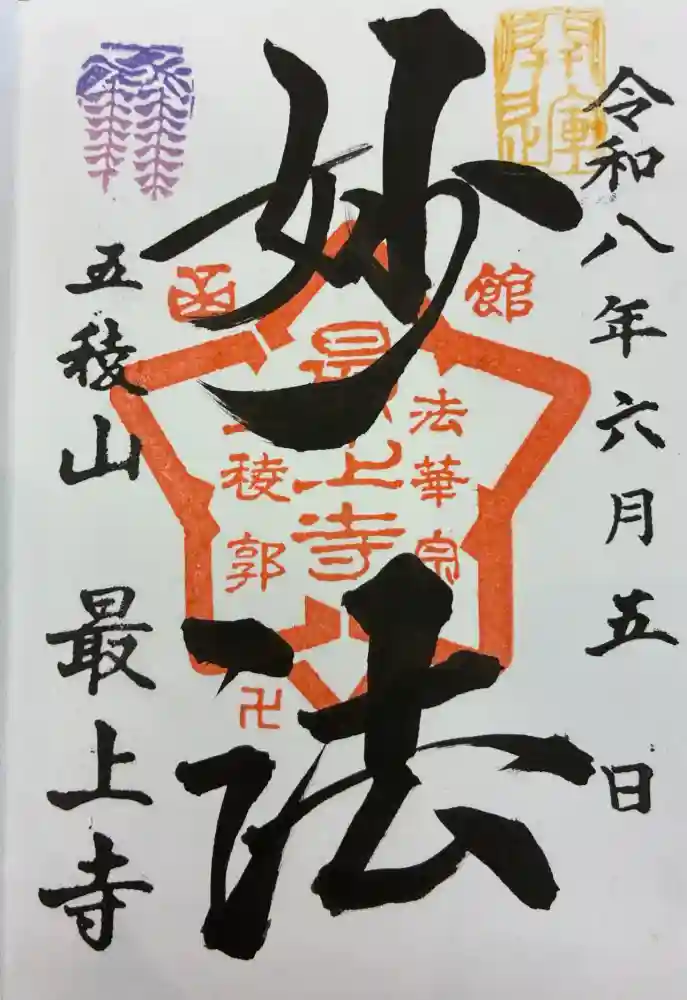 令和八年六月五日
開運
妙法
函館
法華宗
最上寺
五稜郭
卍
五稜山 最上寺